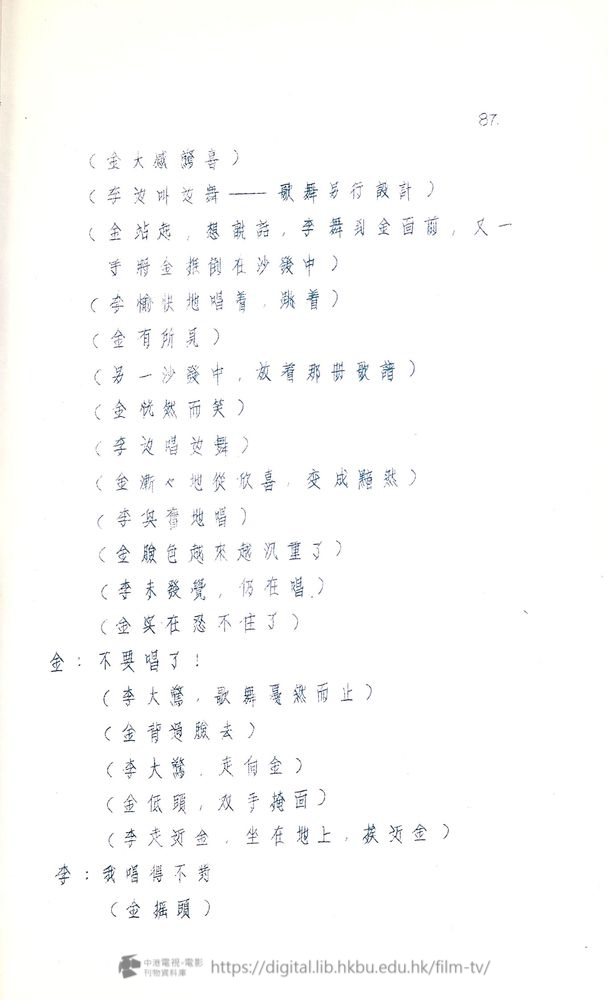 87.
(金大感驚喜)
(李边叫边舞——歌舞另行設計)
(金站起,想說話,李舞到金面前,又一
手將金推倒在沙發中)
(李愉快地唱着,跳着)
(金有所見)
(另一沙發中,放着那册歌譜)
(金恍然而笑)
(李边唱边舞)
(金漸々地從欣喜,变成黯然)
(李兴奮地唱)
(金臉色越來越沉重了)
(李未發覺,仍在唱.)
(金实在忍不住了)
金:不要唱了!
(李大驚,歌舞戞然而止)
(金背過臉去)
(李大驚.走向金)
(金低頭,双手掩面)
(李走近金.坐在地上.挨近金)
李:我唱得不对
(金摇頭)
中港電視·電影
刊物資料庫
https://digital.lib.hkbu.edu.hk/film-tv/